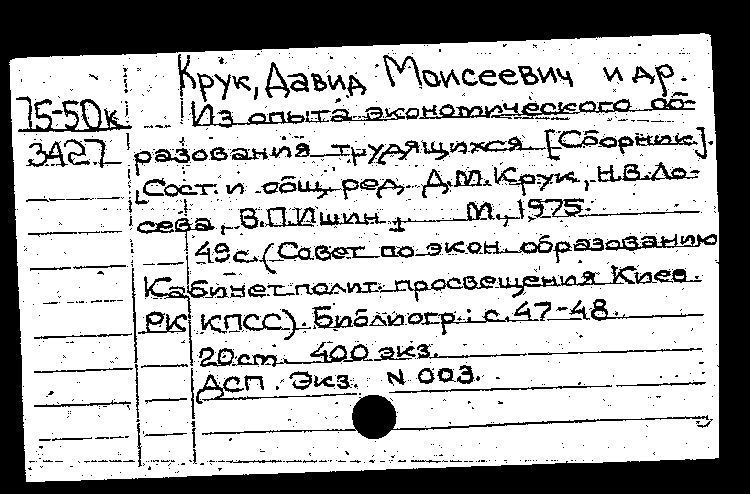 Крук, Давид Моисеевич и др.
75-50к Из опыта экономического об-
3427 разования трудящихся [Сборник].
[Сост. и общ. ред. Д.М. Крук, Н.В. Ло-
сева, В.П. Ишин]. М., 1975.
49с. (Совет по экон. образованию
Кабинет полит. просвещения Киев.
РК КПСС). Библиогр.: с. 47-48.
20 cm. 400 экз.
ДСП. Экз. N 003.